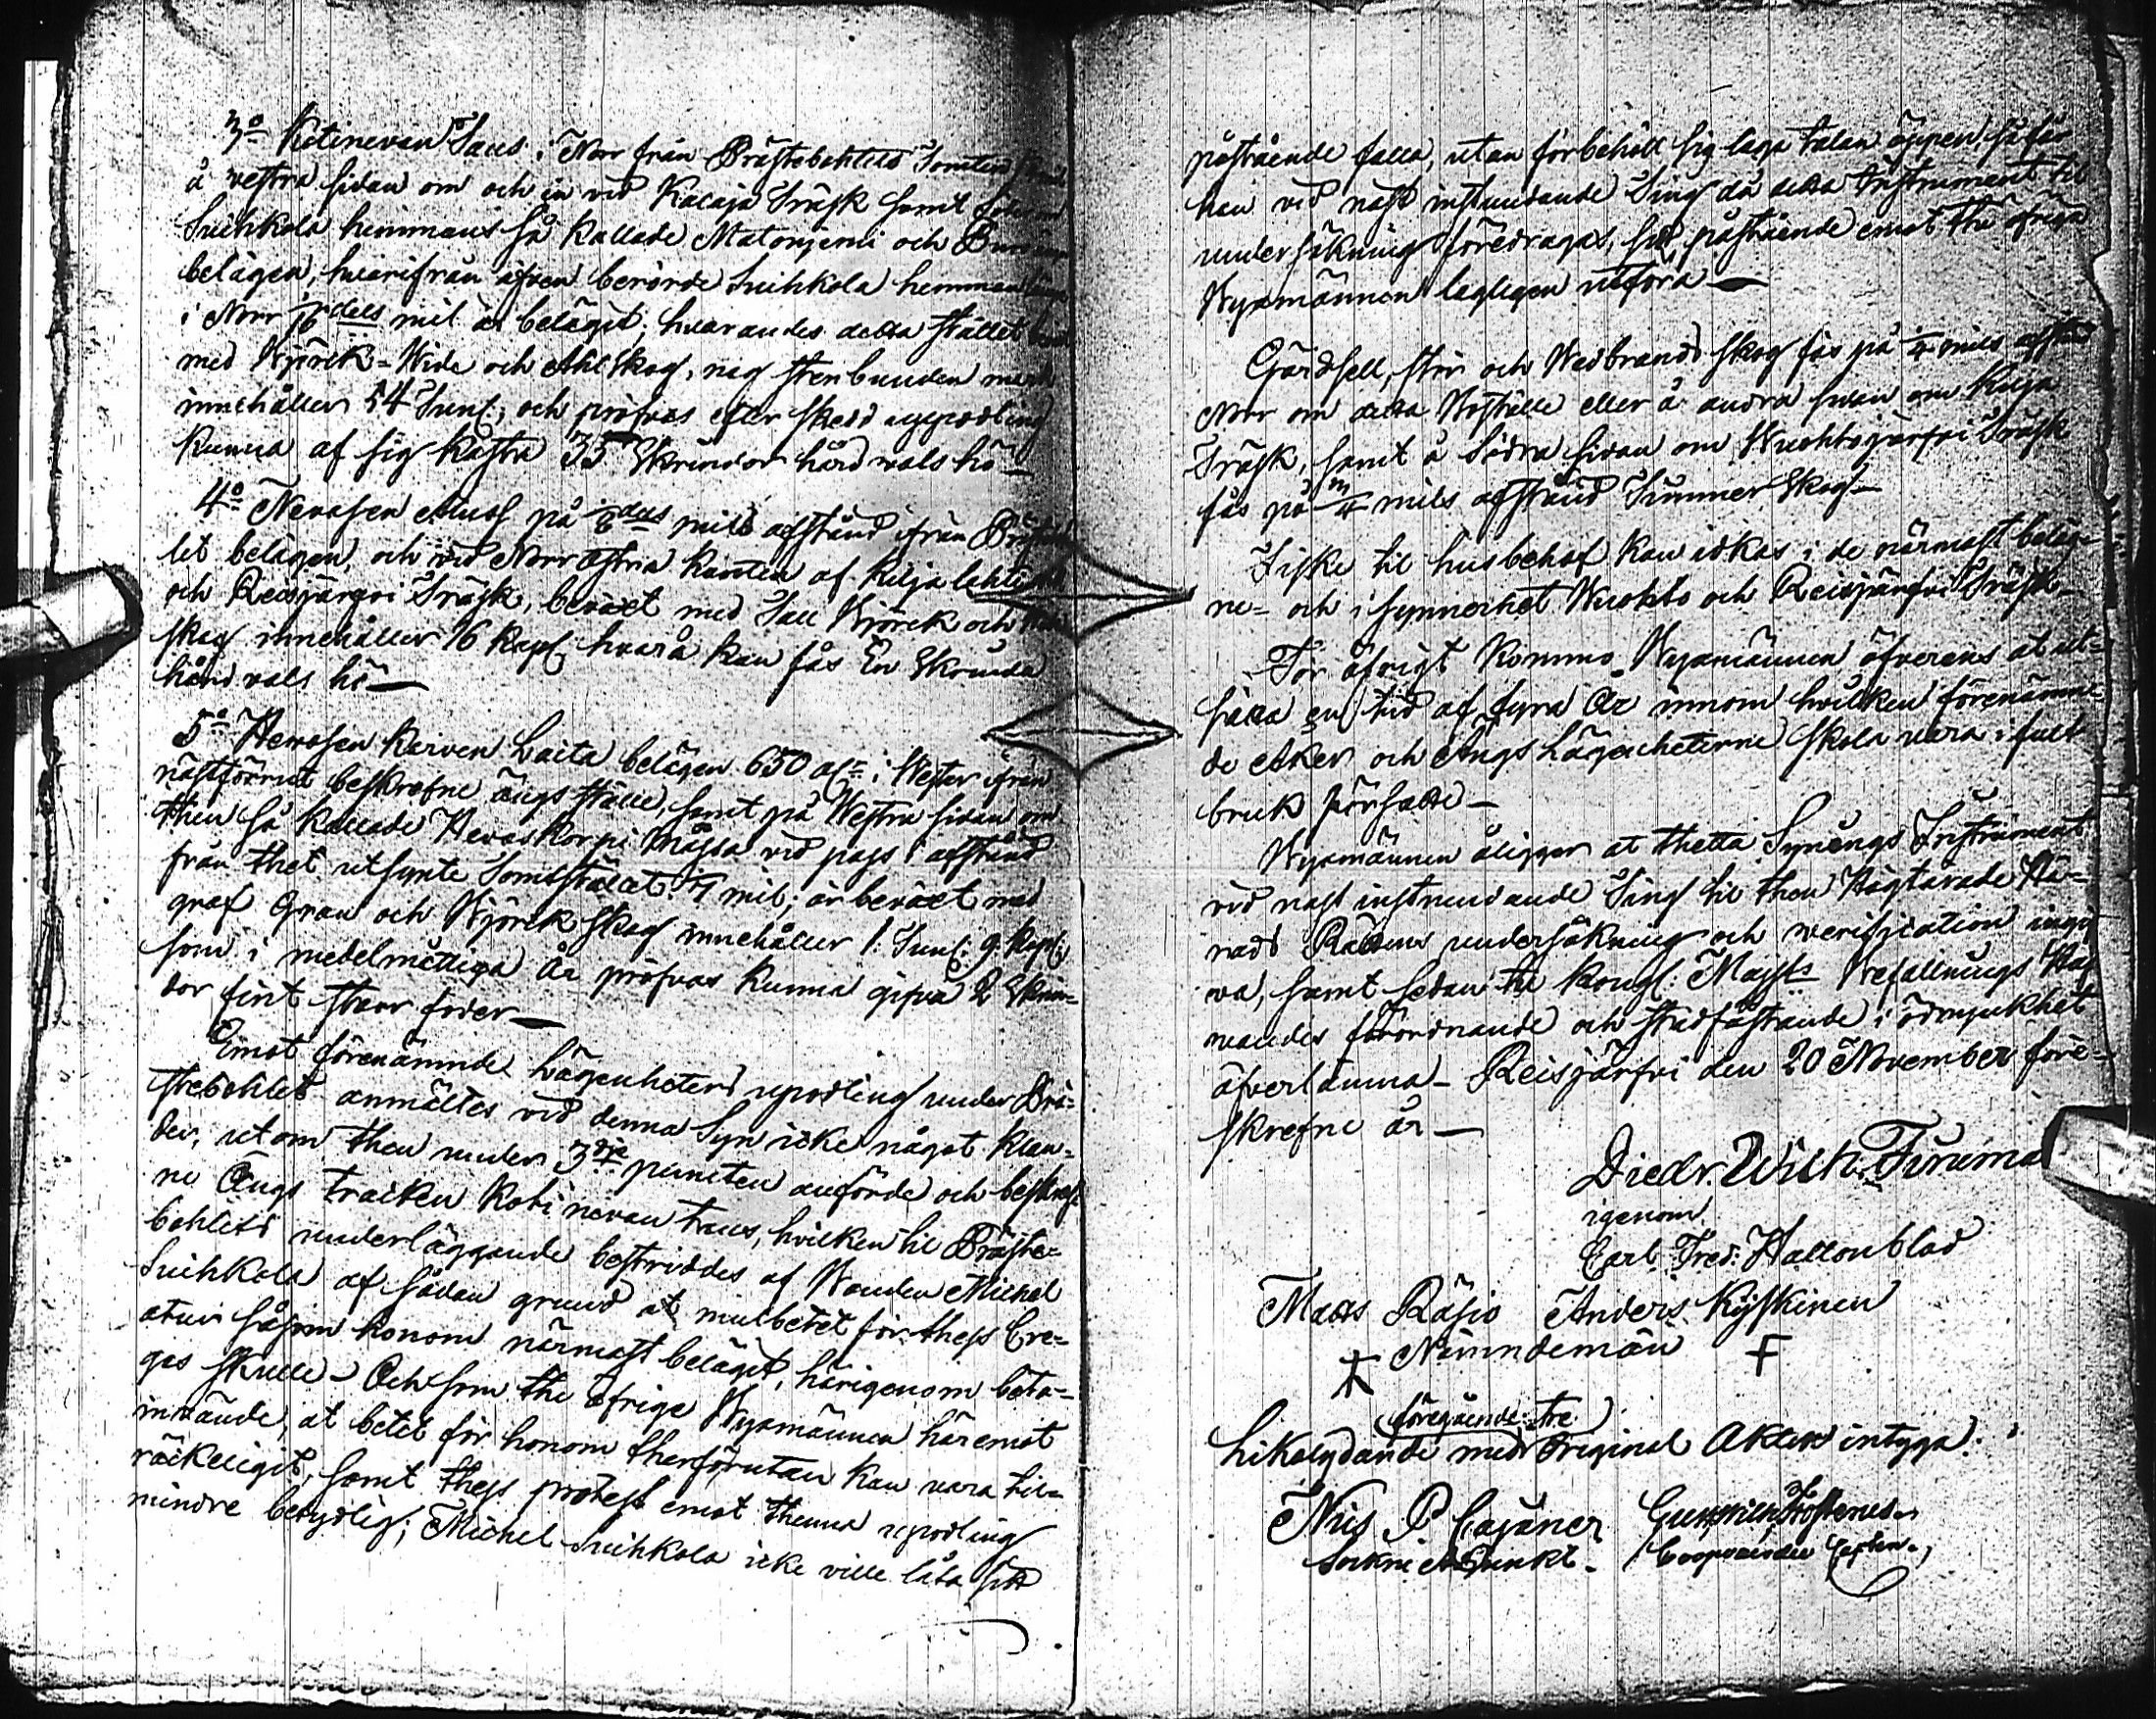 3o Kotinevan Saus i Norr från Prästebohlets Tomten
å vestra sidan om och in vid Kalaja Träsk samt
Suihkola hemmans så kallade Matonjerni och
belägen, hvarifrån äfven berörde Suihkola hemman
i Norr dels mil är belägit; hvarandes detta stället
med Björck-Wide och Ahl Skog, nog stenbunden mark
innehåller 54 Tunl; och pröfvas efter skedd uppodling
kunna af sig kasta 35 Skrindor hårdvals hö —
4o Nevasen på dels mils afstånd ifrån
let belägen, och vid Norr östra kanten af Kilja lahti
och Reisjärgvi Träsk, beväxt med Tall Björck och
skog innehåller 16 kapl. hvarå kan fås En Skrinda
hårdvals hö —
5o Hevosen Kerven Laita belägen 650 alr i Vester ifrån
nästförrut beskrefne ängs ställe, samt på Westra sidan om
then så kallade Hevoskorpi Måssa vid pass i afstånd
från thet utsynte Tomtstället 1/4 mil; är beväxt med
graf Gran och Björck Skog innehåller 1: Tunl: 9 kapl:
som i medelmåttiga år pröfvas kunna gifva 2 Skrin=
dor fint starr foder —
Emot förenämnde Lägenheters upodling under Prä=
stebohlet anmältes vid denna Syn icke något klan=
der, utom then under 3dje puncten anförde och beskref
ne Ängs tracken Kotinevan taus, hvilken til Präste=
bohlets underläggande bestriddes af Bonden Michel
Suihkola af sådan grund at mulbetet för thess Cre=
atur såsom honom närmast beläget, härigenom beta=
gas skulle — Och som the öfrige Nyamännen häremot
invände, at betet för honom therförutan kan vara til=
räckeligit, samt thess protest emot thenna upodling
mindre betydlig; Michel Suihkola icke ville låta sitt
påstående falla, utan förbehöll sig laga talan öppen, så får
han vid näst instundande Ting då detta Instrument til
undersökning föredragas, sitt påstående emot the öfriga
Nyamännen lagligen utföra —
Gärdsell, stör och Wedbrands skog fås på 1/4 mils afstånd
Norr om detta Boställe eller å andra sidan om Kilja
Träsk, samt å Södra sidan om Wuohtojärfvi Träsk
fås på mils afstånd Timmer Skog —
Fiske til husbehof kan idkas i de närmast beläg=
ne= och i synnerhet Wuohto och Reisjärfvi Träsk —
För öfrigt kommo Nyamännen öfverens at ut=
sätta en tid af fyra År innom hvilken förenämn=
de Åker och Ängs Lägenheterne skola vara i fult
bruk försatte —
Nyamännen åligger at thetta Synings Instrument
vid näst instundande Ting til then Högtärade Hä=
rads Rättens undersökning och verification ingif
va, samt sedan til Kongl: Maijts Befallnings Haf
vandes förordnande och stadfästande i ödmjukhet
öfverlämna — Reisjärfvi den 20 November före=
skrefne år —
Diedr. Wilh.
igenom
Carl Fred: Hallonblad
Matts Räsio Anders Kyskinen
Nämndemän
(föregående tre)
Likalydande med Original Akten intyga:
Nils P Cajaner